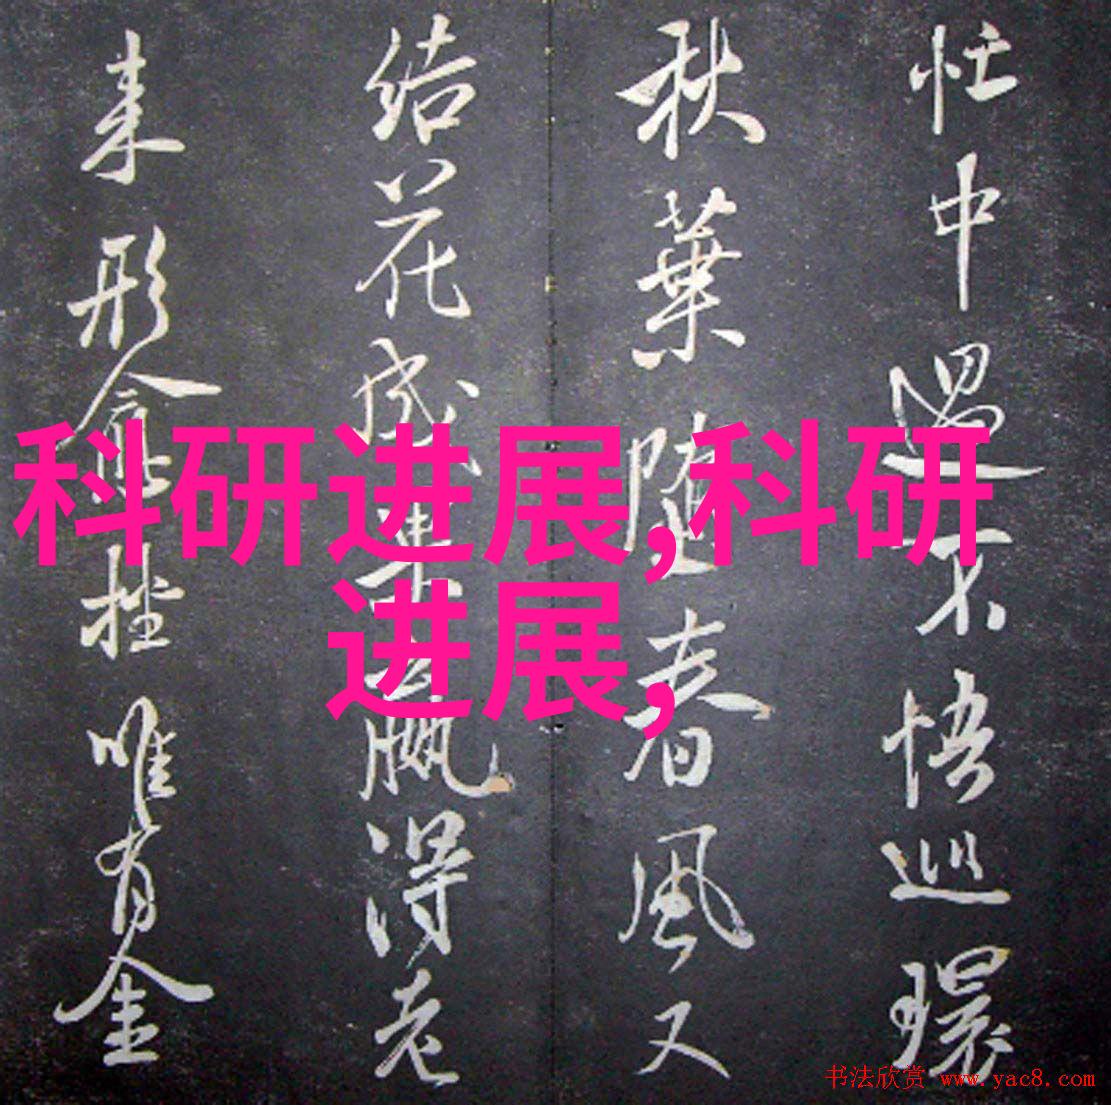 科研进展,科研
进展,
忙中過不悟巡環
秋葉隨春風又
结花成果贏得老
来形唯有金
书法欣赏 www.yac8.com